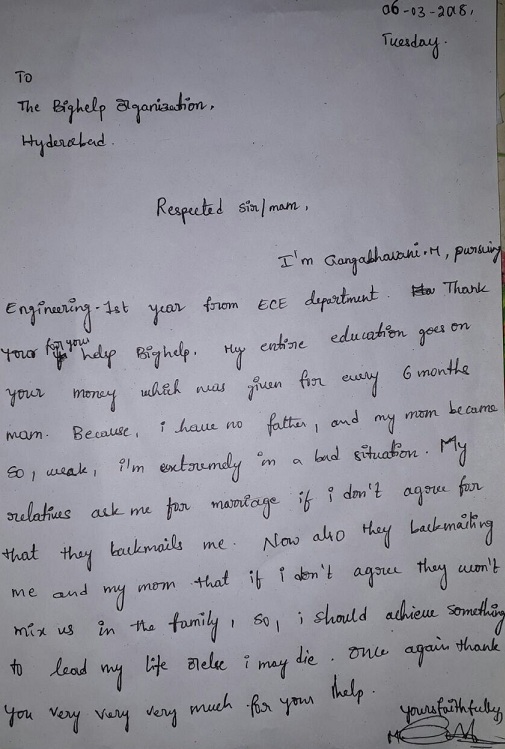 06-03-2018,
Tuesday.
To
The Bighelp Organization,
Hyderabad.
Respected sir/mam,
I'm Gangabhavani.M, pursuing
Engineering-1st year from ECE department. Thank
your for you help Bighelp. My entire education goes on
your money which was given for every 6 months
mam. Because, i have no father, and my mom became
so, weak, i'm extremely in a bad situation. My
relatives ask me for marriage if i don't agree for
that they backmails me. Now also they backmailing
me and my mom that if i don't agree they won't
mix us in the family, so, i should achieve something
to lead my life orelse i may die. once again thank
you very very very much for your help.
yours faithfully,